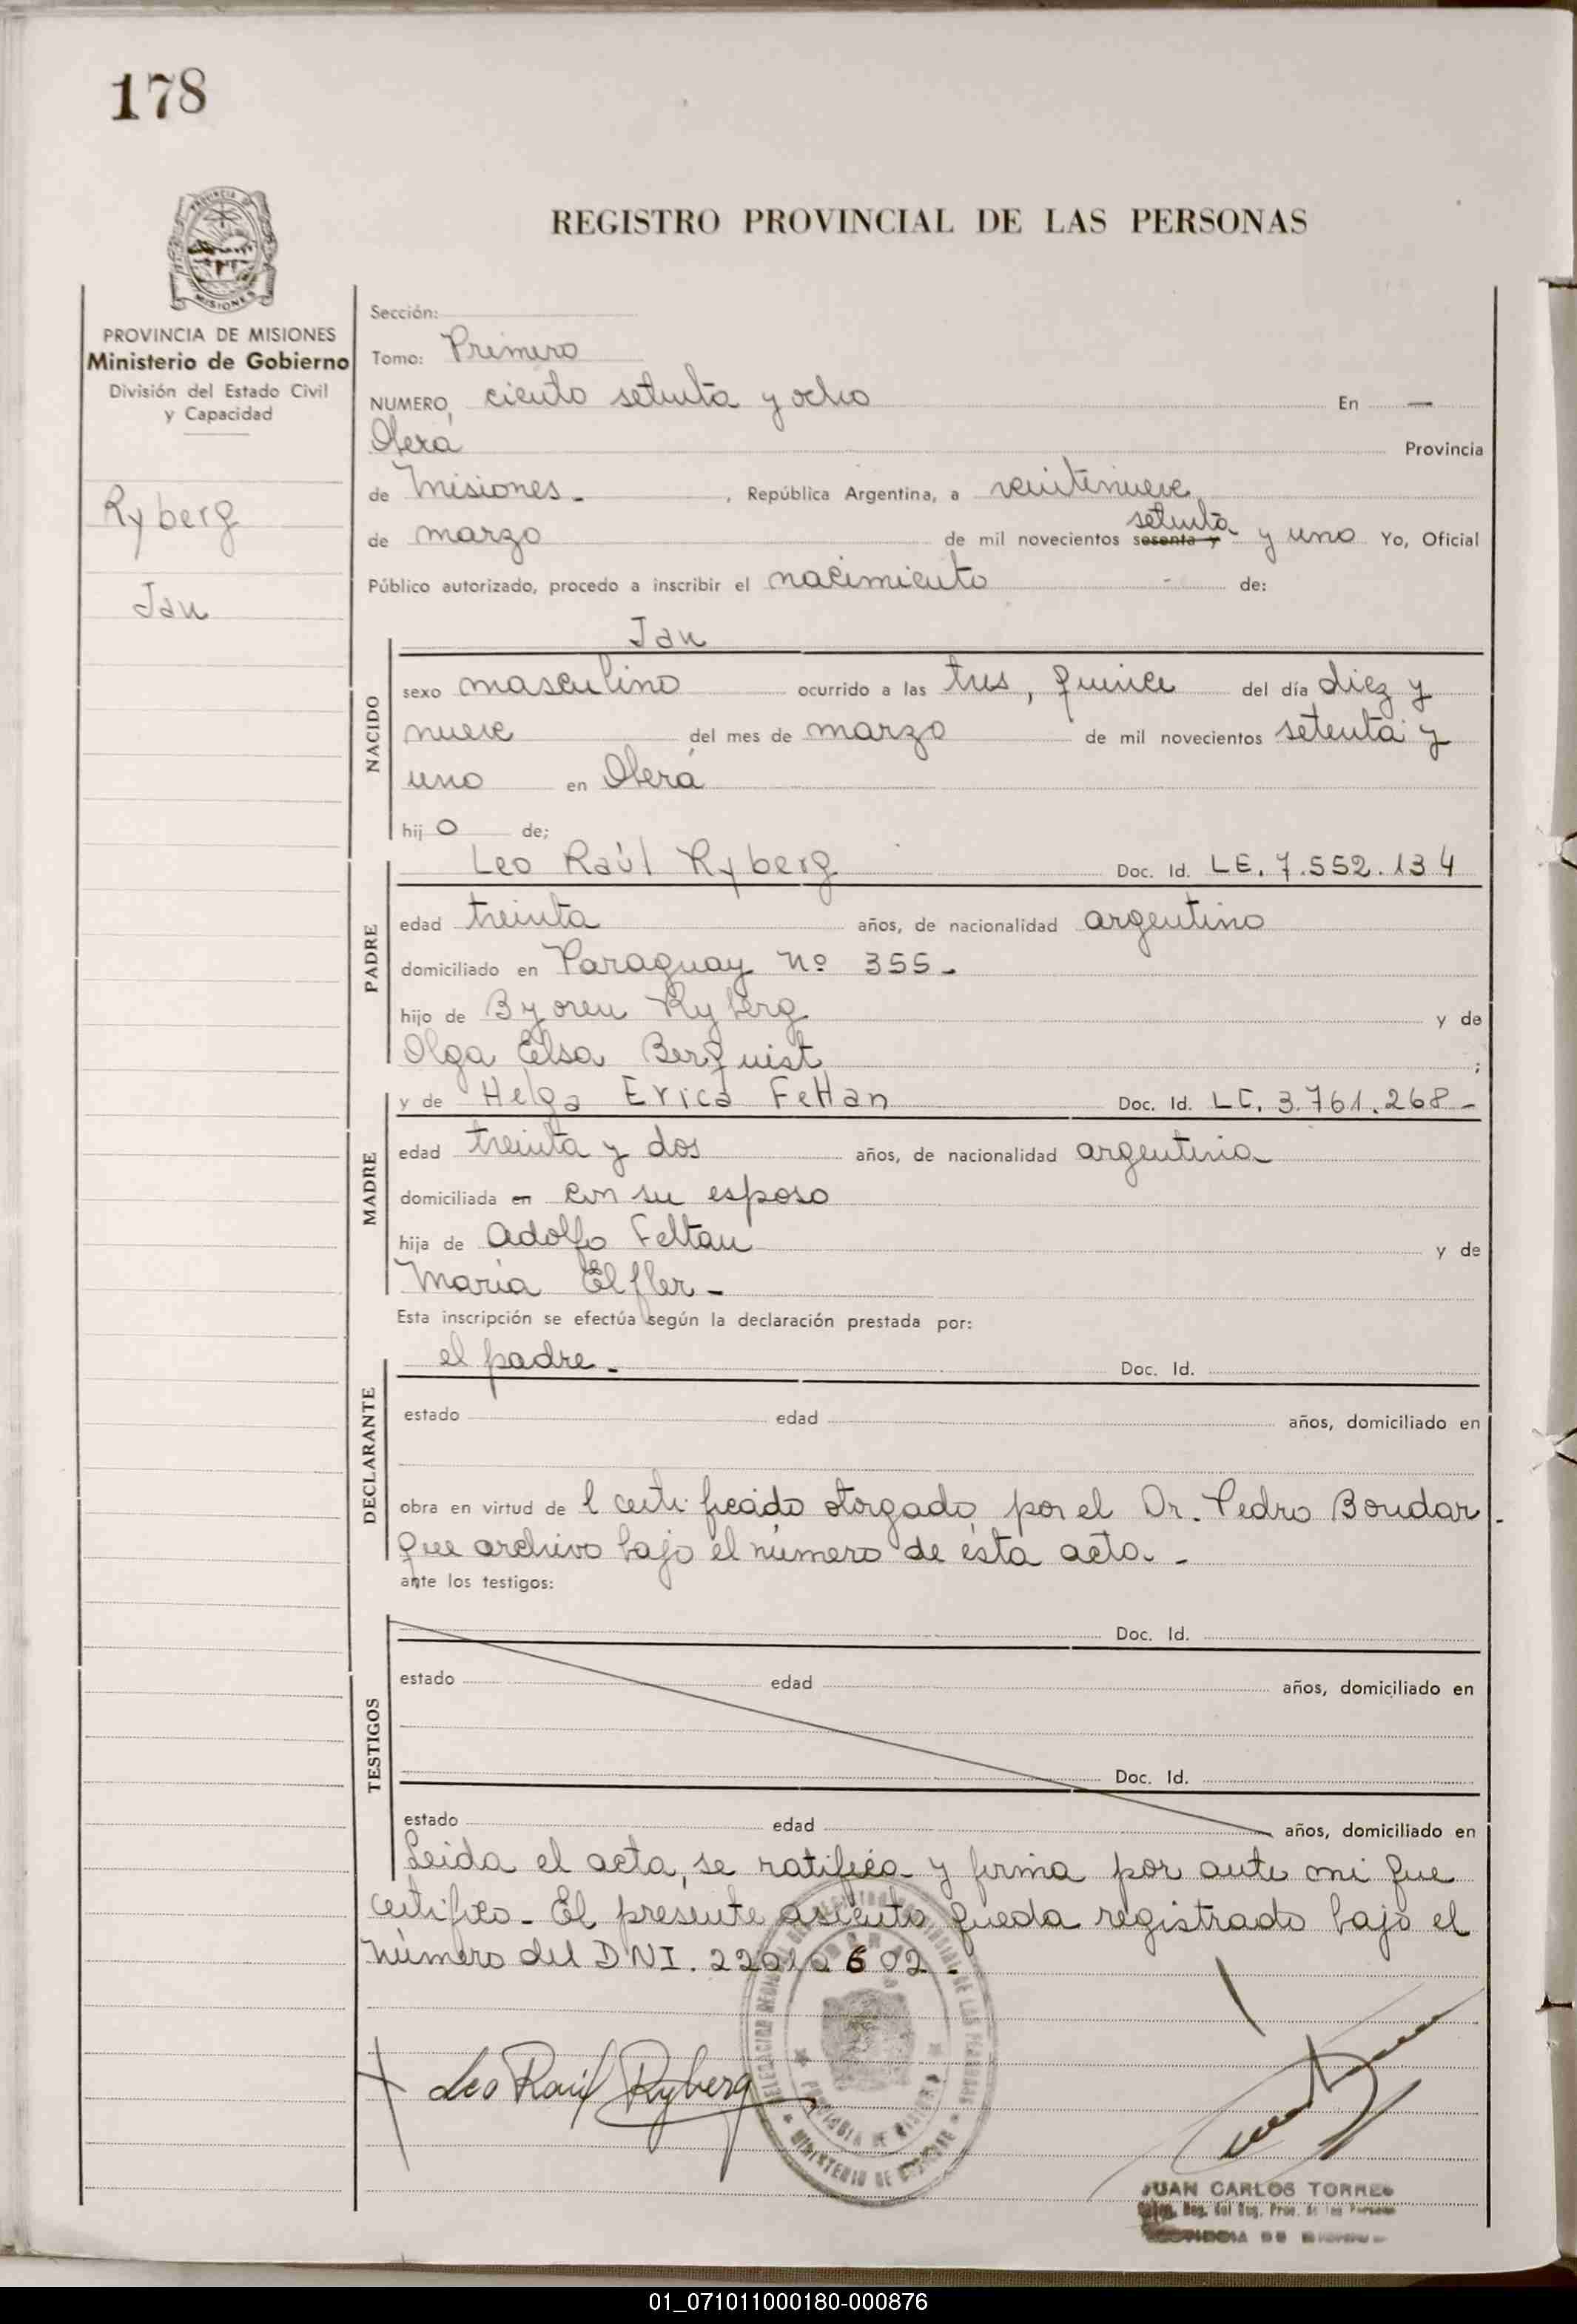 178
PROVINCIA DE MISIONES
Ministerio de Gobierno
División del Estado Civil
y Capacidad
Ryberg
Jan
REGISTRO PROVINCIAL DE LAS PERSONAS
Sección:
Tomo: Primero
NUMERO, ciento setenta y ocho En —
Oberá Provincia
de Misiones. , República Argentina, a veintinueve
de marzo de mil novecientos sesenta y setenta y uno Yo, Oficial
Público autorizado, procedo a inscribir el nacimiento - de:
Jan
NACIDO
sexo masculino ocurrido a las tres, quince del día diez y
nueve del mes de marzo de mil novecientos setenta y
uno en Oberá
hij o de;
PADRE
Leo Raúl Ryberg Doc. Id. LE. 7.552.134
edad treinta años, de nacionalidad argentino
domiciliado en Paraguay nº 355.
hijo de Byoren Ryberg y de
Olga Elsa Berquist ;
MADRE
y de Helga Erica Feltan Doc. Id. LC. 3.761.268-
edad treinta y dos años, de nacionalidad argentina
domiciliada en con su esposo
hija de Adolfo Feltan y de
María Elfler-
Esta inscripción se efectúa según la declaración prestada por:
DECLARANTE
el padre. Doc. Id.
estado edad años, domiciliado en
obra en virtud de l certificado otorgado por el Dr. Pedro Bondar.
que archivo bajo el número de ésta acta.-
ante los testigos:
TESTIGOS
Doc. Id.
estado edad años, domiciliado en
Doc. Id.
estado edad años, domiciliado en
Leida el acta, se ratifica y firma por ante mi que
certifico- El presente asiento queda registrado bajo el
número del DNI. 22010602.
Leo Raúl Ryberg
PROVINCIA DE MISIONES
MINISTERIO DE GOBIERNO
JUAN CARLOS TORRES
01_071011000180-000876